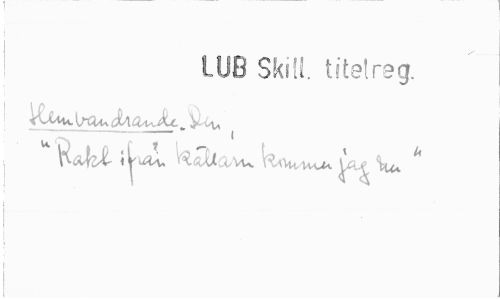 LUB Skill. titelreg.
Hemvandrande. Den,
"Rakt ifrån källarn kommer jag nu"